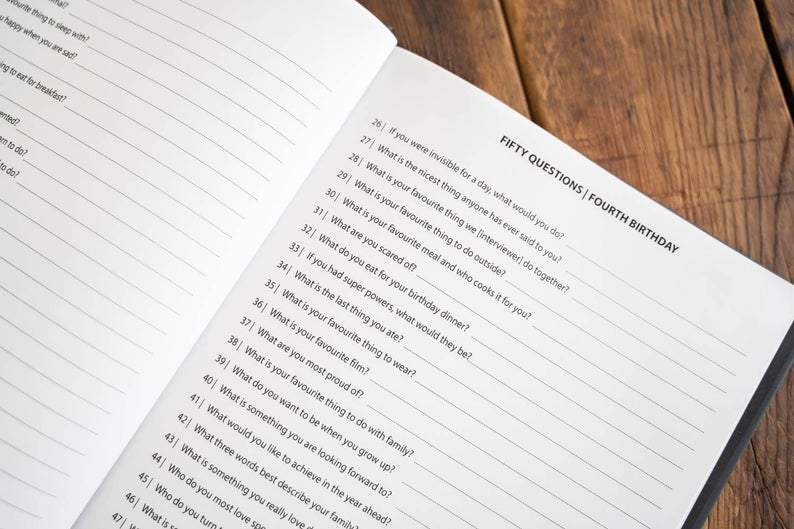 favourite thing to sleep with?
happy when you are sad?
to eat for breakfast?
to do?
to do?
FIFTY QUESTIONS | FOURTH BIRTHDAY
26| If you were invisible for a day, what would you do?
27| What is the nicest thing anyone has ever said to you?
28| What is your favourite thing we [interviewer] do together?
29| What is your favourite thing to do outside?
30| What is your favourite meal and who cooks it for you?
31| What are you scared of?
32| What do you eat for your birthday dinner?
33| If you had super powers, what would they be?
34| What is the last thing you ate?
35| What is your favourite thing to wear?
36| What is your favourite film?
37| What are you most proud of?
38| What is your favourite thing to do with family?
39| What do you want to be when you grow up?
40| What is something you are looking forward to?
41| What would you like to achieve in the year ahead?
42| What three words best describe your family?
43| What is something you really love
44| Who do you most love
45| Who do you turn
46| What is
47|